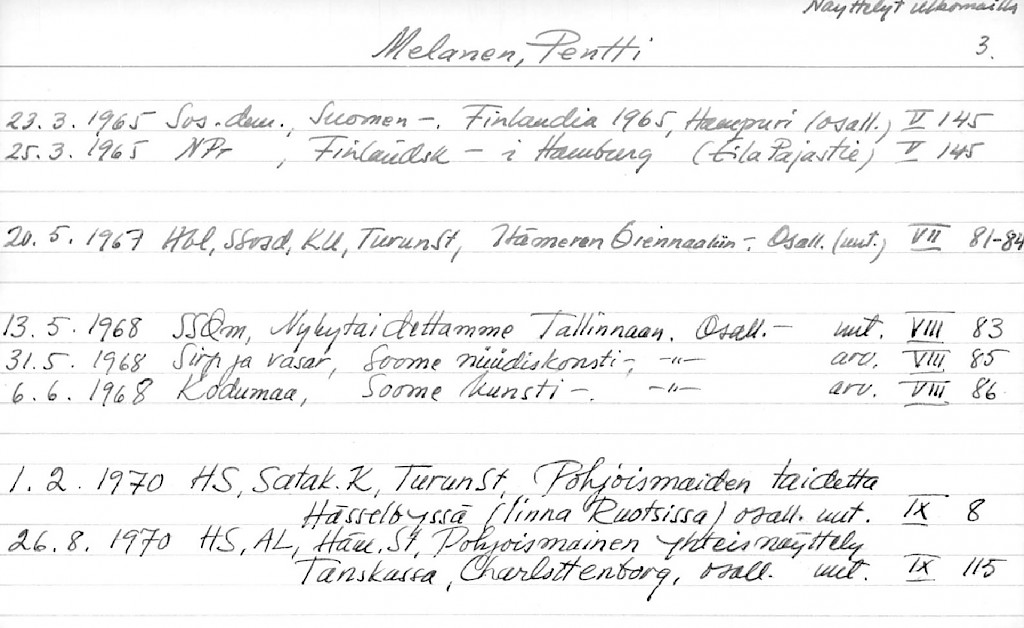 Näyttelyt ulkomailla
Melanen, Pentti 3.
23.3.1965 Sos.dem., Suomen -. Finlandia 1965, Hampuri (osall.) V 145
25.3.1965 NPr , Finländsk - i Hamburg (Eila Pajastie) V 145
20.5.1967 Hbl, SSosd, KU, TurunSt, Itämeren biennaaliin -. Osall. (uut.) VII 81-84
13.5.1968 SSOm, Nykytaidettamme Tallinnaan. Osall. - uut. VIII 83
31.5.1968 Sirp ja vasar, Soome nüüdiskonsti -, -"- arv. VIII 85
6.6.1968 Kodumaa, Soome kunsti -. -"- arv. VIII 86
1.2.1970 HS, Satak.K, TurunSt, Pohjoismaiden taidetta
Hässelbyssä (linna Ruotsissa) osall. uut. IX 8
26.8.1970 HS, AL, Häm.St, Pohjoismainen yhteisnäyttely
Tanskassa, Charlottenborg, osall. uut. IX 115